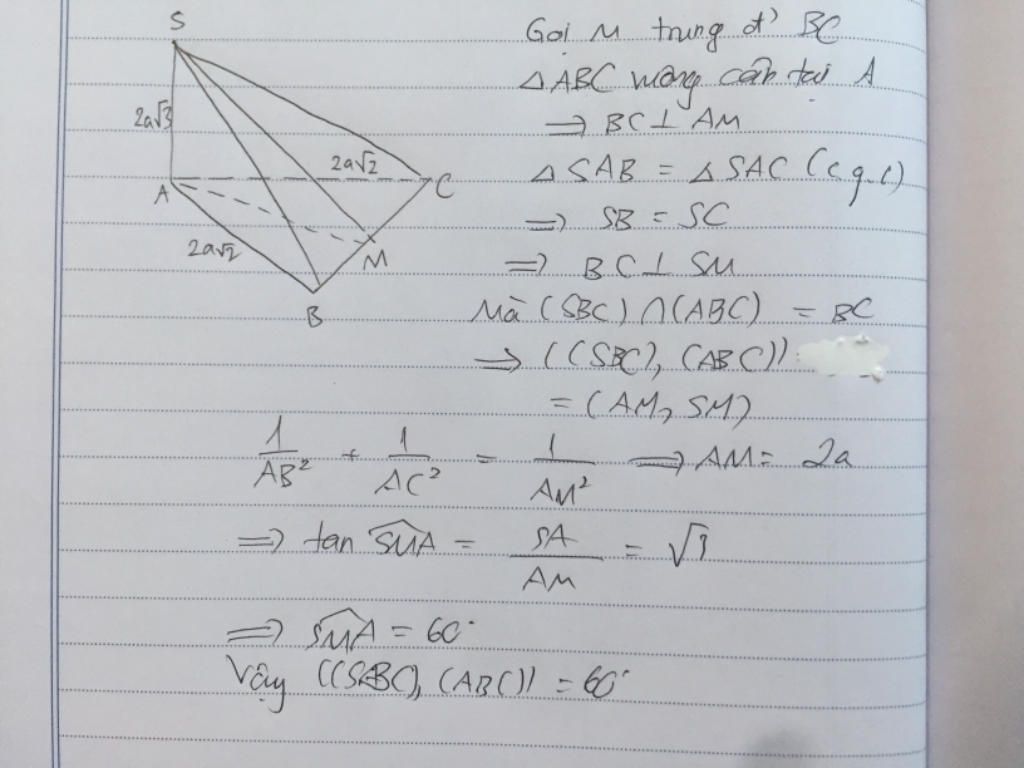 S
2a√3
A
2a√2
C
2a√2
M
B
Gọi M trung đ' BC
△ABC vuông cân tại A
⇒ BC ⊥ AM
△SAB = △SAC (c.g.c)
⇒ SB = SC
⇒ BC ⊥ SM
Mà (SBC) ∩ (ABC) = BC
⇒ ((SBC), (ABC))
= (AM, SM)
1/AB² + 1/AC² = 1/AM² ⇒ AM = 2a
⇒ tan SMA = SA/AM = √3
⇒ SMA = 60°
Vậy ((SBC), (ABC)) = 60°